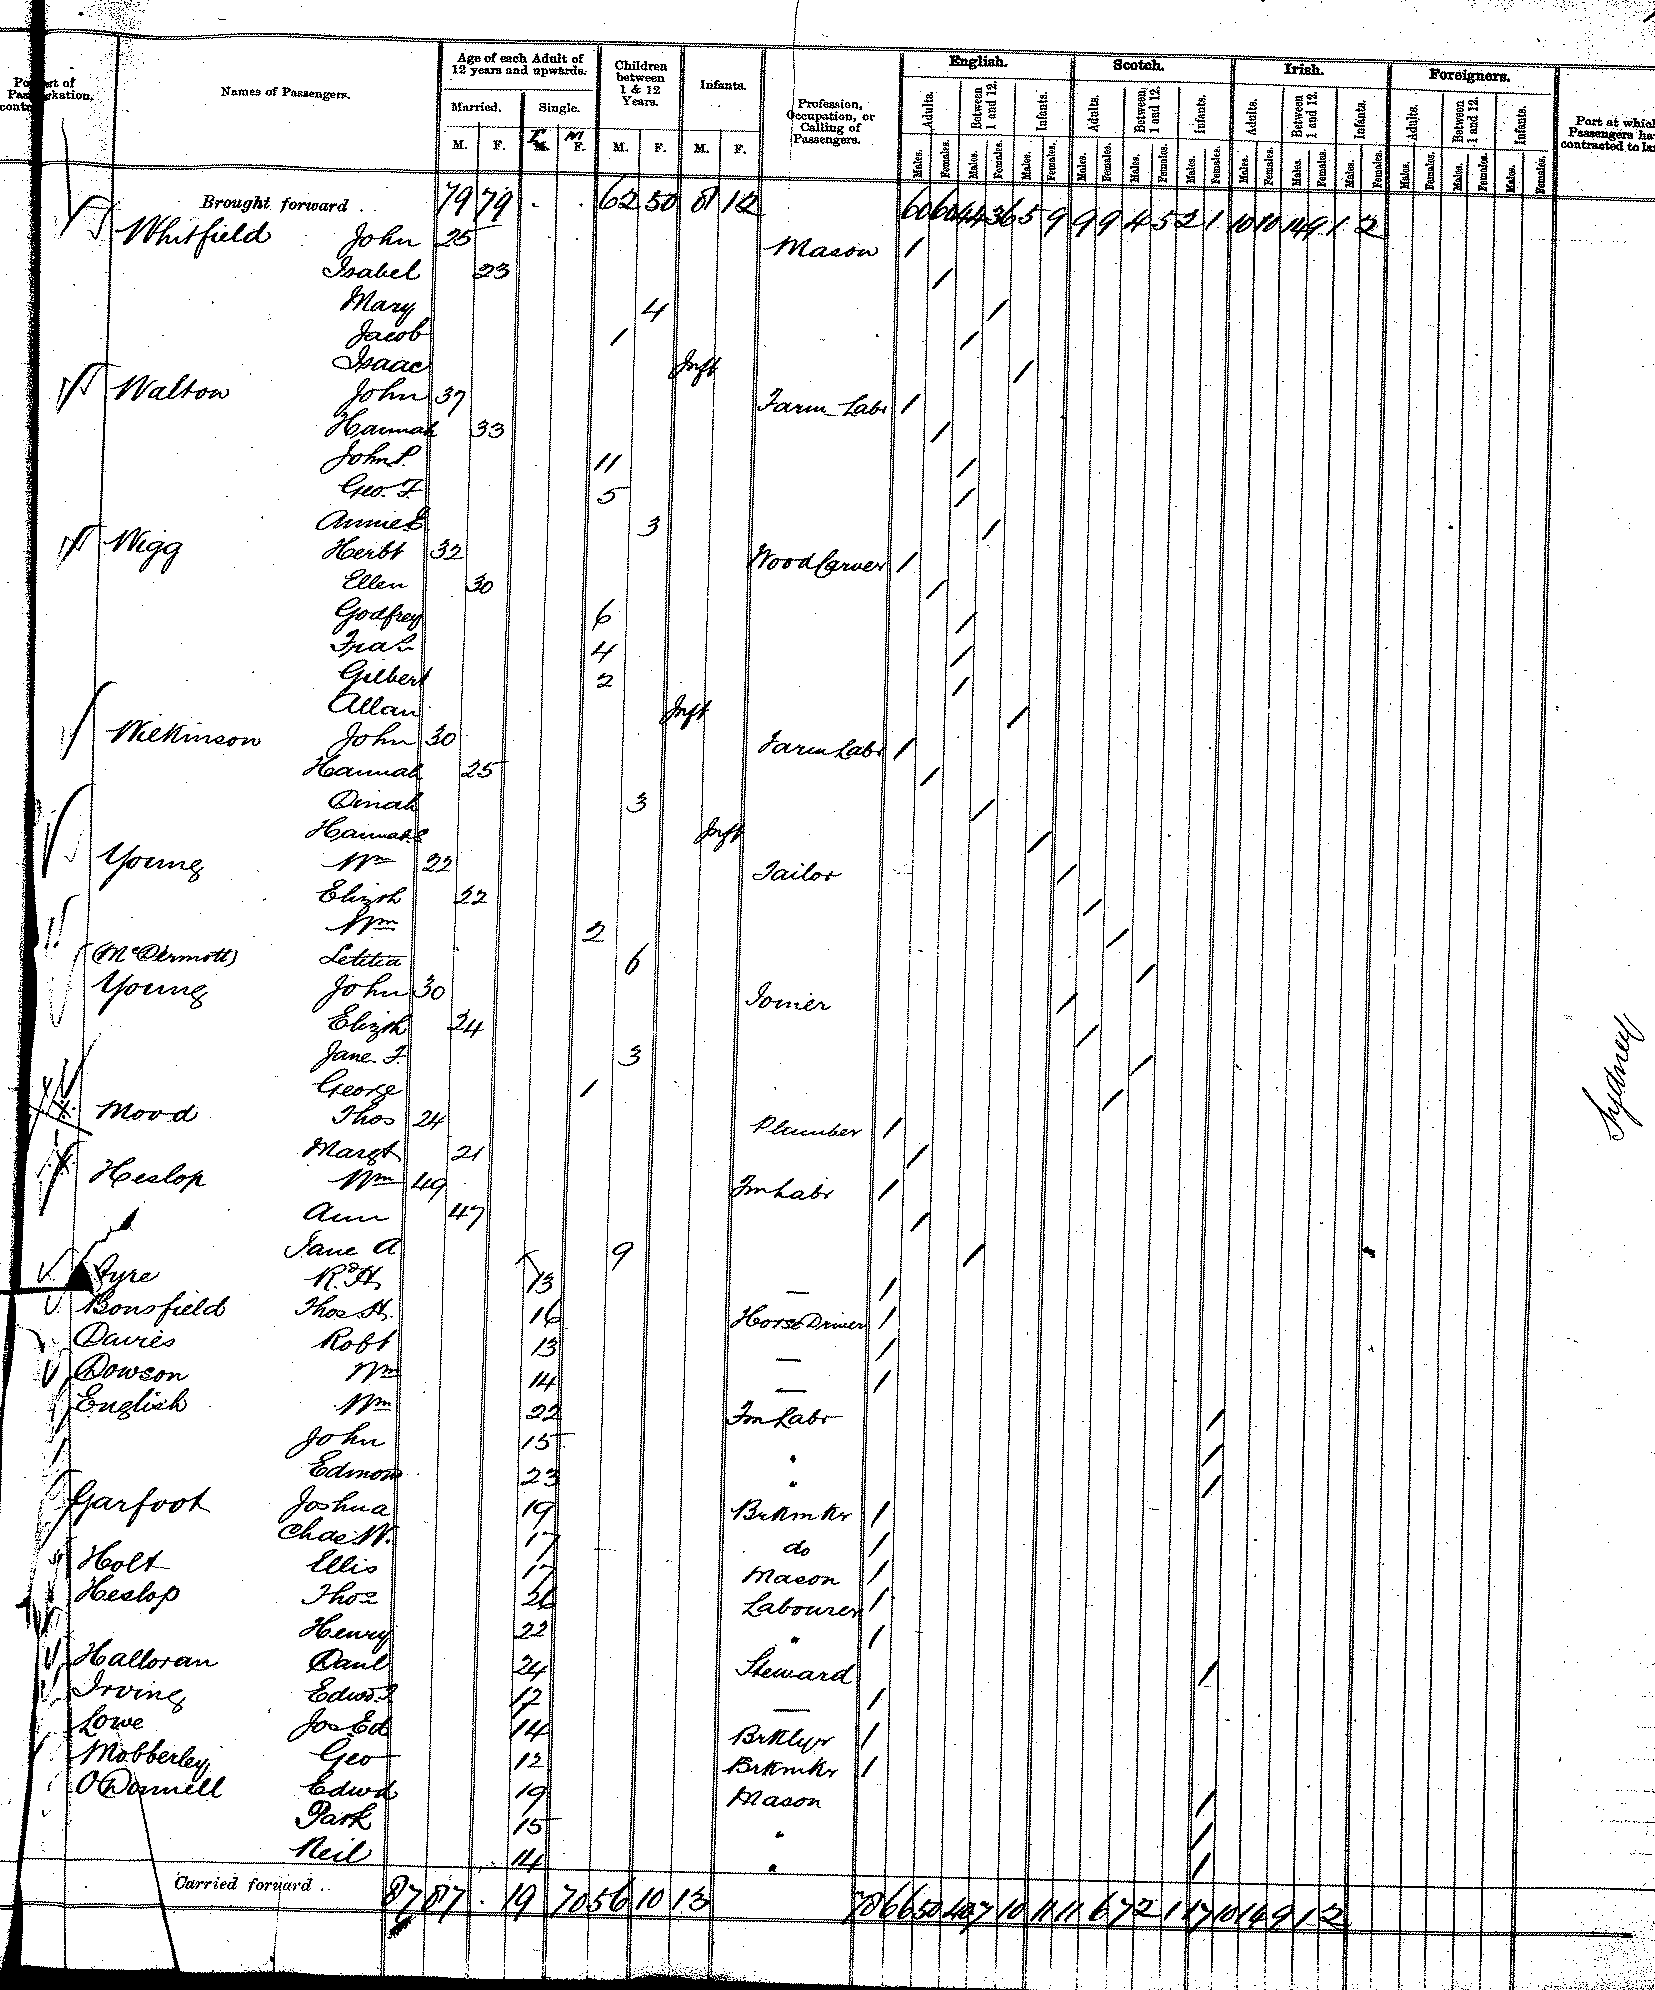 Port of Embarkation.
Names of Passengers.
Age of each Adult of 12 years and upwards.
Married. Single.
M. F. M. F.
Children between 1 & 12 Years.
M. F.
Infants.
M. F.
Profession, Occupation, or Calling of Passengers.
English. Scotch. Irish. Foreigners.
Adults. Between 1 and 12. Infants. Adults. Between 1 and 12. Infants. Adults. Between 1 and 12. Infants. Adults. Between 1 and 12. Infants.
Males. Females. Males. Females. Males. Females. Males. Females. Males. Females. Males. Females. Males. Females. Males. Females. Males. Females. Males. Females. Males. Females. Males. Females.
Port at which Passengers have contracted to land
Brought forward . 79 79 . . 62 50 8 12 60 60 44 36 5 9 9 9 4 5 2 1 10 10 14 9 1 2
Whitfield John 25 Mason /
Isabel 23 /
Mary 4 /
Jacob 1 /
Isaac Inft /
Walton John 37 Farm Labr /
Hannah 33 /
John P. 11 /
Geo. F. 5 /
Annie E 3 /
Wigg Herbt 32 Wood Carver /
Ellen 30 /
Godfrey 6 /
4 /
Gilbert 2 /
Allan Inft /
Wilkinson John 30 Farm Labr /
Hannah 25 /
Dinah 3 /
Hannah E Inft /
Young Wm 22 Tailor /
Elizth 22 /
Wm 2 /
(McDermott) Letitia 6 /
Young John 30 Joiner /
Elizth 24 /
Jane. F. 3 /
George 1 /
Mood Thos 24 Plumber /
Margt 21 /
Heslop Wm 49 Fm Labr /
Ann 47 /
Jane A 9 /
Ayre Rd H. 13 — /
Bonsfield Thos H. 16 Horse Driver /
Davies Robt 13 — /
Dowson Wm 14 — /
English Wm 22 Fm Labr /
John 15 " /
Edmon 23 " /
Garfoot Joshua 19 Brkmkr /
Chas W. 17 do /
Holt Ellis 17 Mason /
Heslop Thos 26 Labourer /
Henry 22 " /
Halloran Danl 24 Steward /
Irving Edwd J 12 — /
Lowe Jos Ed 14 Brklyr /
Mobberley Geo 12 Brkmkr /
O'Donnell Edwd 19 Mason /
Patk 15 " /
Neil 14 " /
Carried forward .. 87 87 . 19 70 56 10 13 78 66 50 40 7 10 11 11 6 7 2 1 17 10 14 9 1 2
Sydney